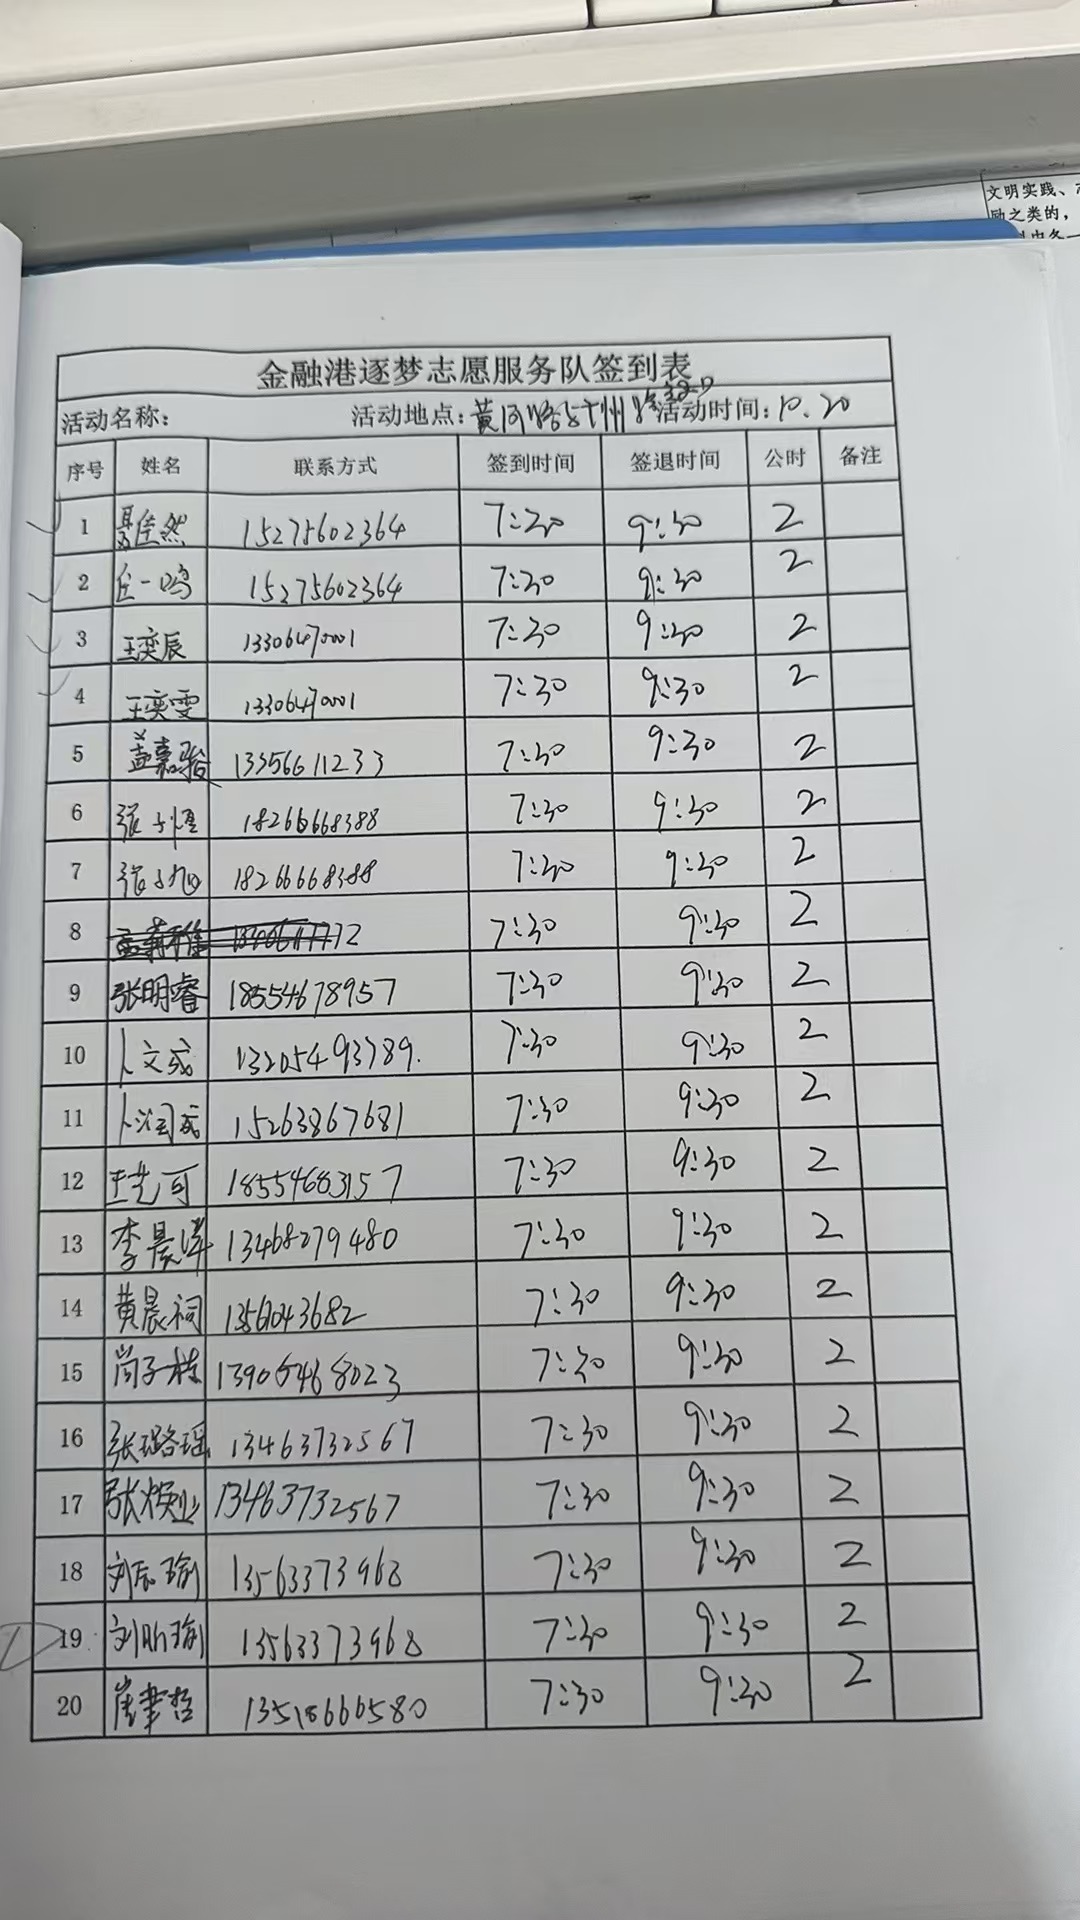 文明实践、
励之类的，
金融港逐梦志愿服务队签到表
活动名称： 活动地点：黄河路与十州路 活动时间：10.20
序号 姓名 联系方式 签到时间 签退时间 公时 备注
1 聂佳然 15275602364 7:30 9:30 2
2 任一鸣 15275602364 7:30 9:30 2
3 王奕辰 13306470001 7:30 9:30 2
4 王奕雯 13306470001 7:30 9:30 2
5 孟嘉骏 13356611233 7:30 9:30 2
6 张子恒 18266668388 7:30 9:30 2
7 张子旭 18266668388 7:30 9:30 2
8 7:30 9:30 2
9 张明睿 18554678957 7:30 9:30 2
10 卜文成 13205493789. 7:30 9:30 2
11 卜润成 15263867681 7:30 9:30 2
12 王艺可 18554683157 7:30 9:30 2
13 李晨泽 13468279480 7:30 9:30 2
14 黄晨祠 7:30 9:30 2
15 尚子桂 13905468023 7:30 9:30 2
16 张璐瑶 13463732567 7:30 9:30 2
17 张焕 13463732567 7:30 9:30 2
18 刘辰瑜 13563373968 7:30 9:30 2
19 刘昕瑜 13563373968 7:30 9:30 2
20 崔聿哲 13518660580 7:30 9:30 2